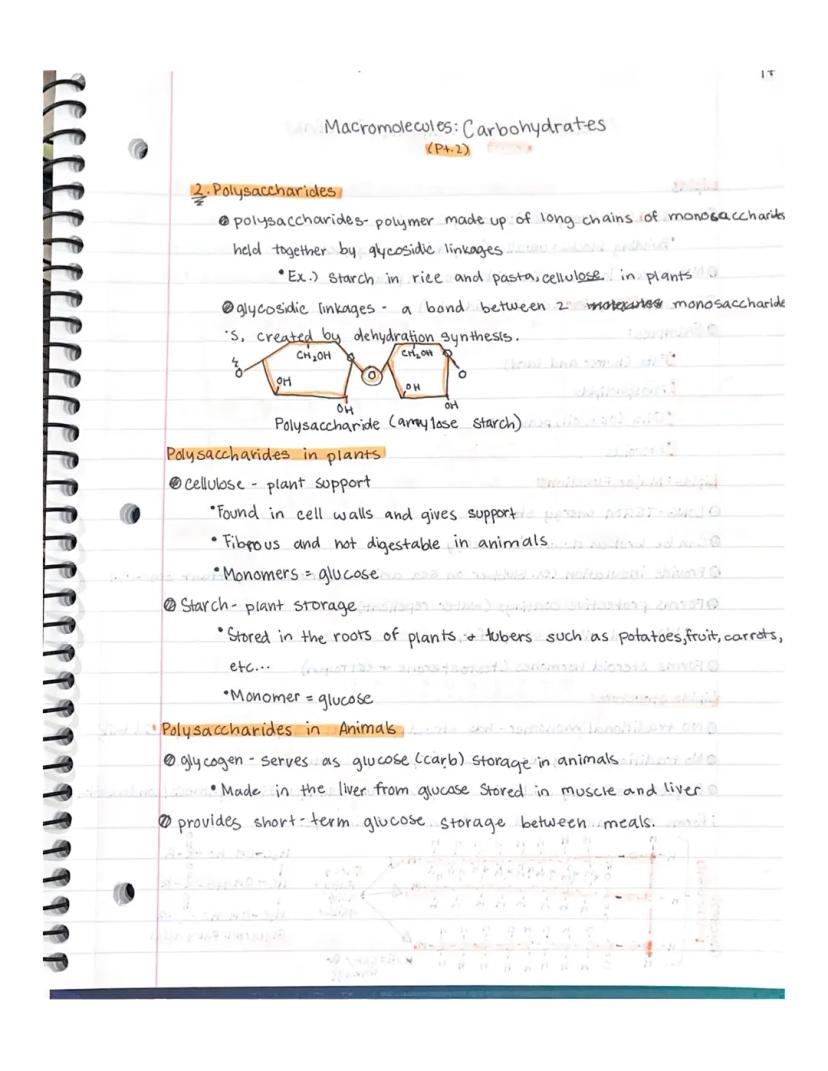 17
Macromolecules: Carbohydrates
(Pt.2)
2. Polysaccharides
polysaccharides- polymer made up of long chains of monosaccharides
held together by glycosidic linkages
•Ex.) Starch in rice and pasta, cellulose in plants
glycosidic linkages - a bond between 2 molecules monosaccharide
's, created by dehydration synthesis.
CH₂OH CH₂OH
O O O
OH OH
OH OH
Polysaccharide (amylose starch)
Polysaccharides in plants
cellulose - plant support
•Found in cell walls and gives support
• Fibrous and not digestable in animals
•Monomers = glucose
Starch- plant storage
•Stored in the roots of plants + tubers such as potatoes, fruit, carrots,
etc...
•Monomer = glucose
• Polysaccharides in Animals
glycogen - serves as glucose (carb) storage in animals
• Made in the liver from glucose Stored in muscle and liver
provides short-term glucose storage between meals.